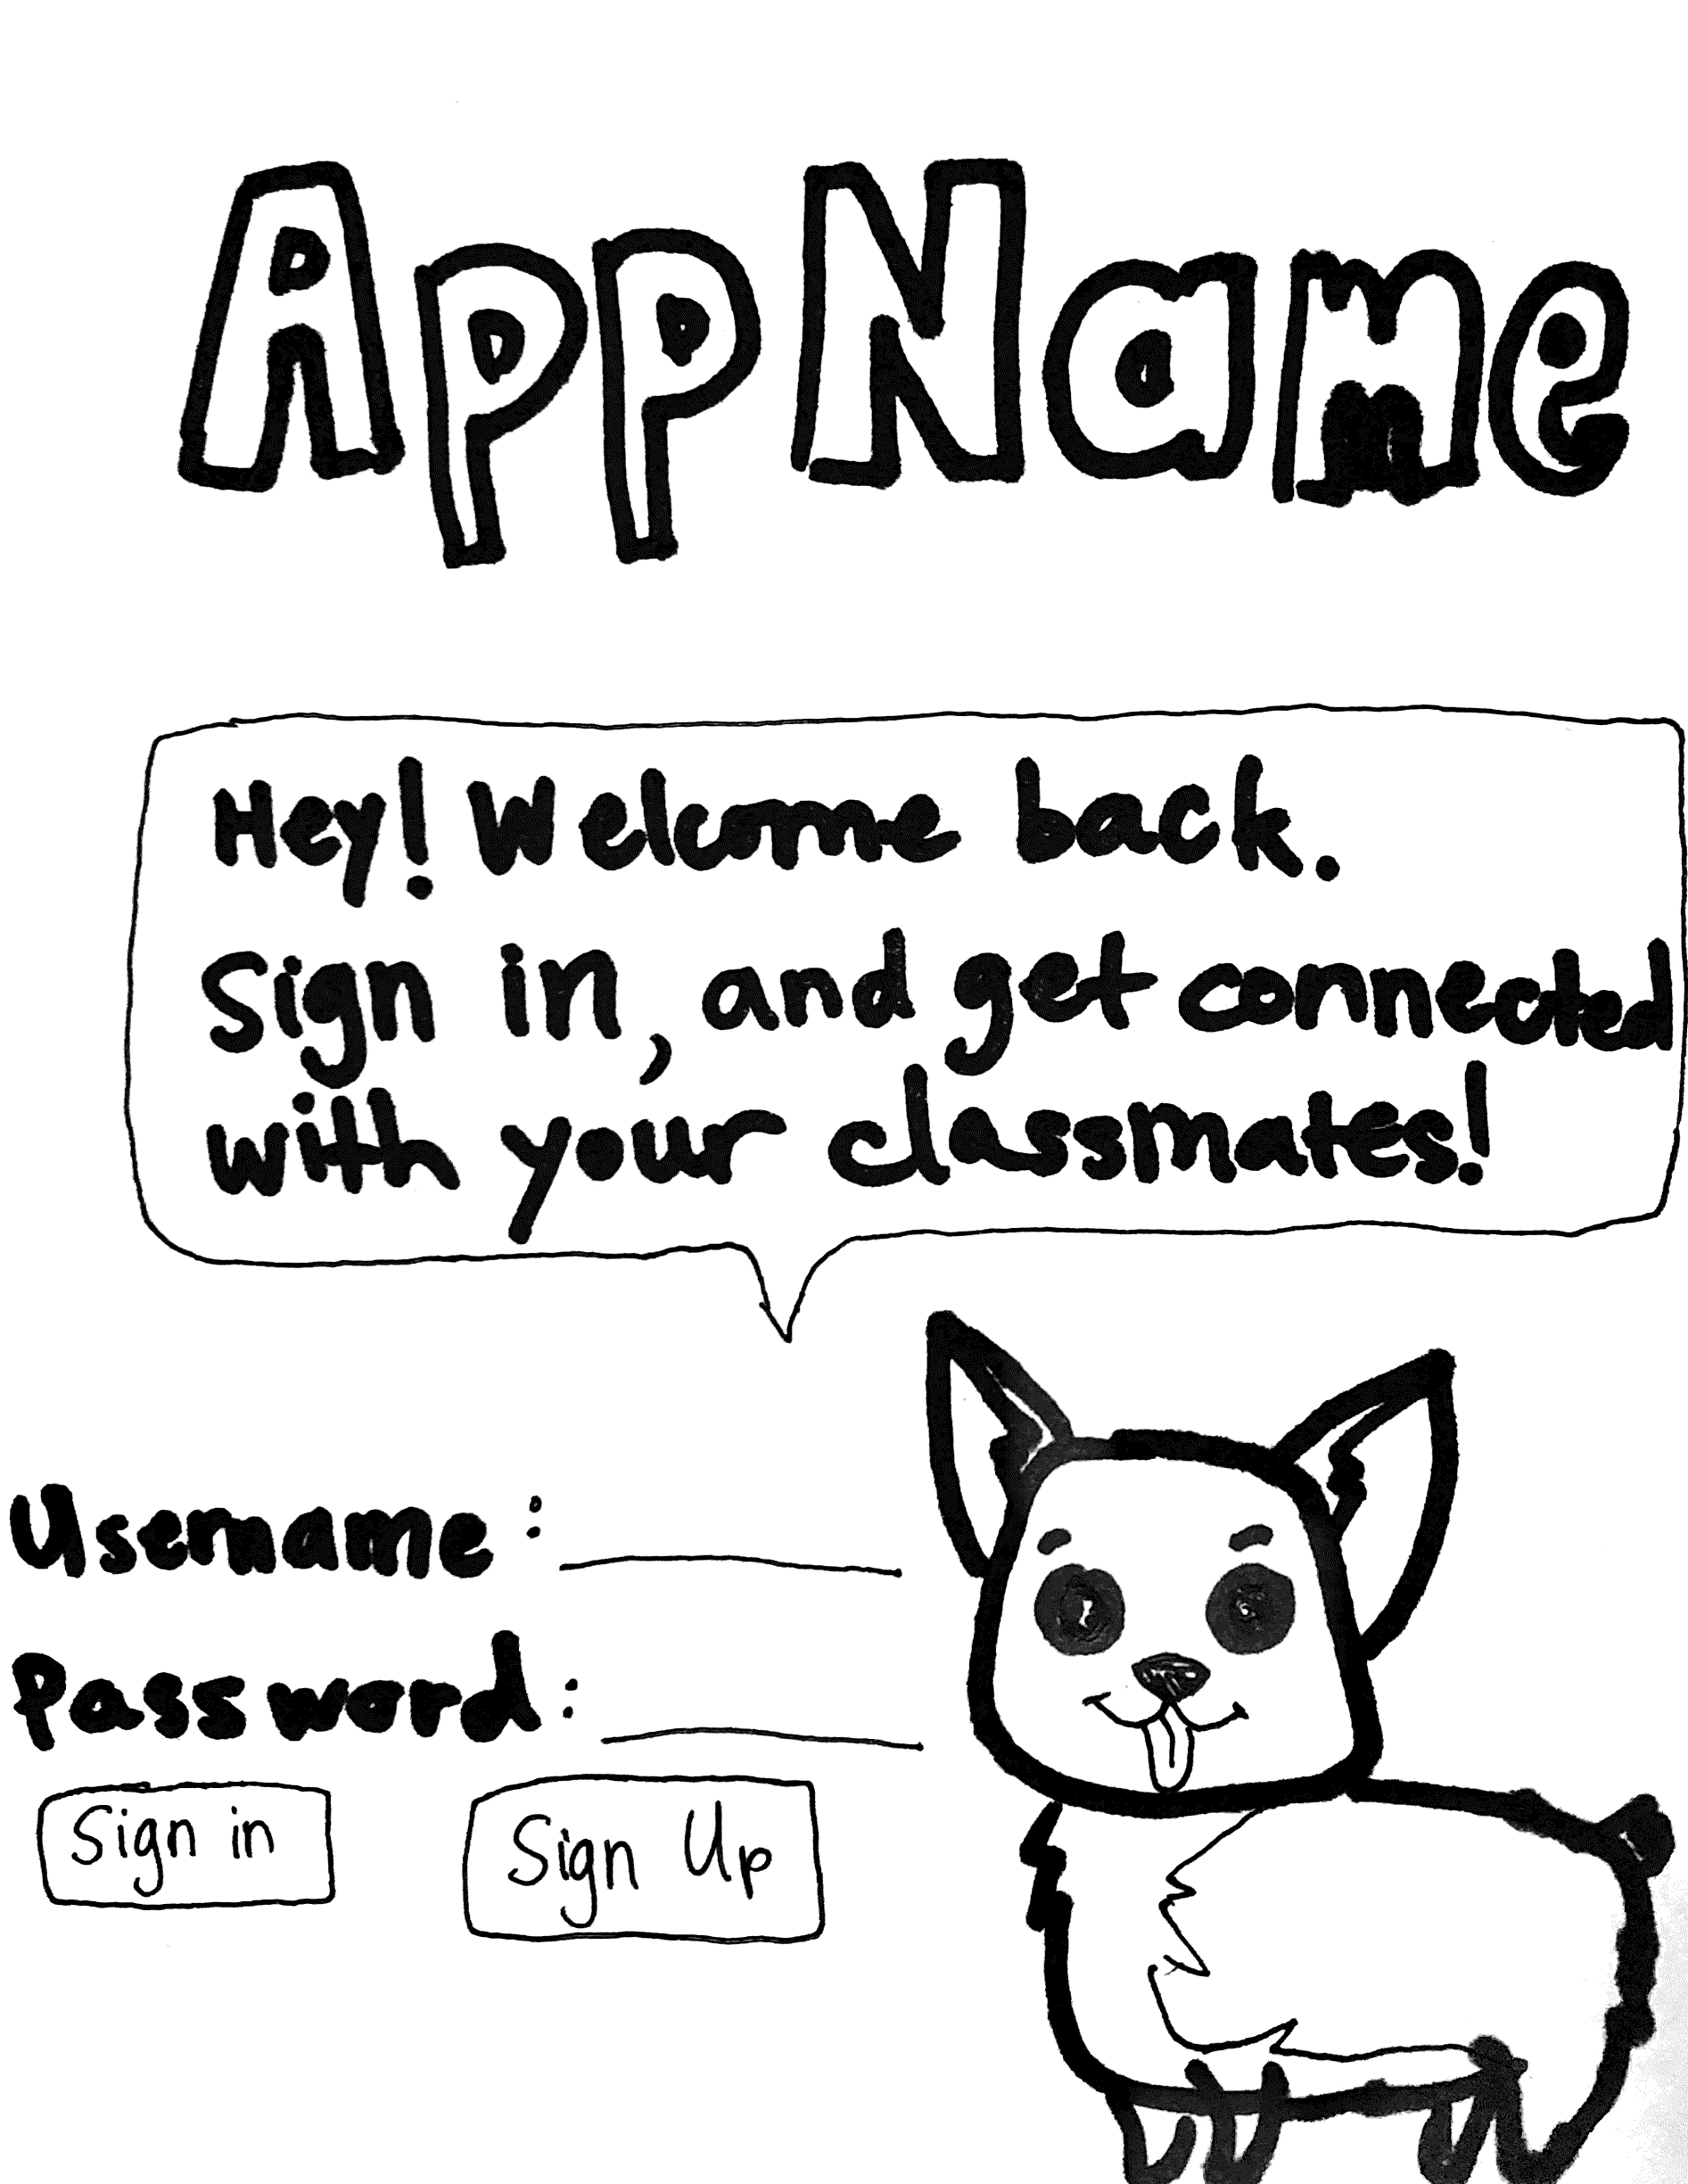 AppName
Hey! Welcome back.
Sign in, and get connected
with your classmates!
Username:
Password:
Sign in
Sign Up